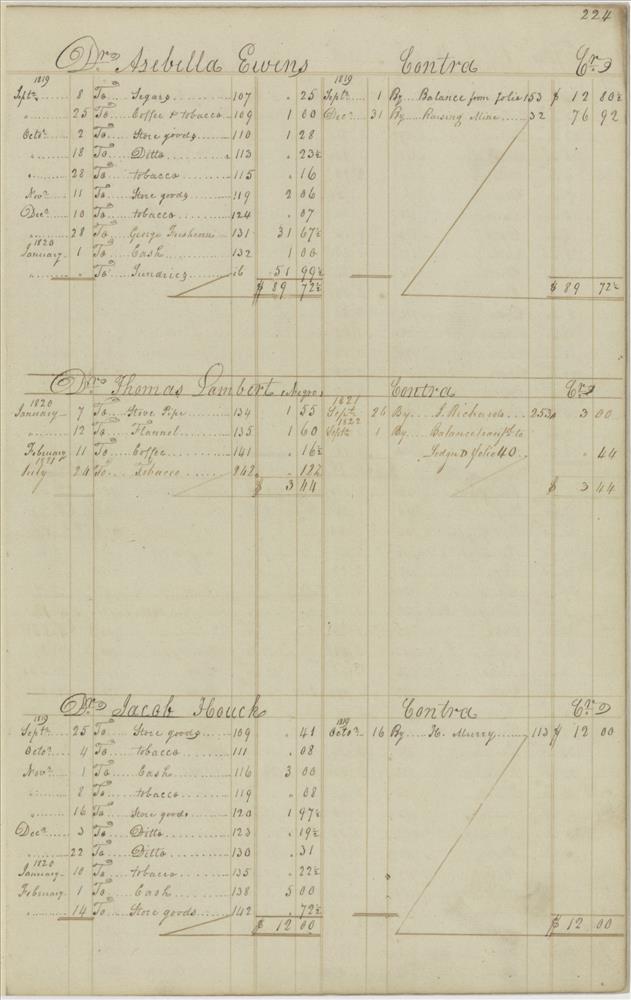 224
Dr. Asebella Ewens Contra Cr.
1819 1819
Sept. 8 To Segars 107 . 25 Sept. 1 By Balance from folio 153 $ 12 80½
" 25 To Coffee & tobacco 109 1 00 Dec. 31 By Raising Mine 32 76 92
Octo. 2 To Store goods 110 1 28
" 18 To Ditto 113 . 23½
" 28 To tobacco 115 . 16
Nov. 11 To Store goods 119 2 06
Dec. 10 To tobacco 124 . 07
" 28 To George 131 31 67½
1820
January 1 To Cash 132 1 00
" " To Sundries 16 51 99½
$ 89 72½ $ 89 72½
Dr. Thomas Lambert Negro Contra Cr.
1820 1821
January 7 To Stove Pipe 134 1 55 Sept. 26 By J. Richards 253 3 00
1822
" 12 To Flannel 135 1 60 Sept. 1 By Balance to
February 11 To Coffee 141 . 16½ Ledger D folio 40 . 44
1821
July 24 To Tobacco 242 . 12½
$ 3 44 $ 3 44
Dr. Jacob Houck Contra Cr.
1819 1819
Sept. 25 To Store goods 109 . 41 Octo. 16 By H. Murry 113 $ 12 00
Octo. 4 To tobacco 111 . 08
Nov. 1 To Cash 116 3 00
" 8 To tobacco 119 . 08
" 16 To Store goods 120 1 97½
Dec. 3 To Ditto 123 . 19½
" 22 To Ditto 130 . 31
1820
January 10 To tobacco 135 . 22½
February 1 To Cash 138 5 00
" 14 To Store goods 142 . 72½
$ 12 00 $ 12 00